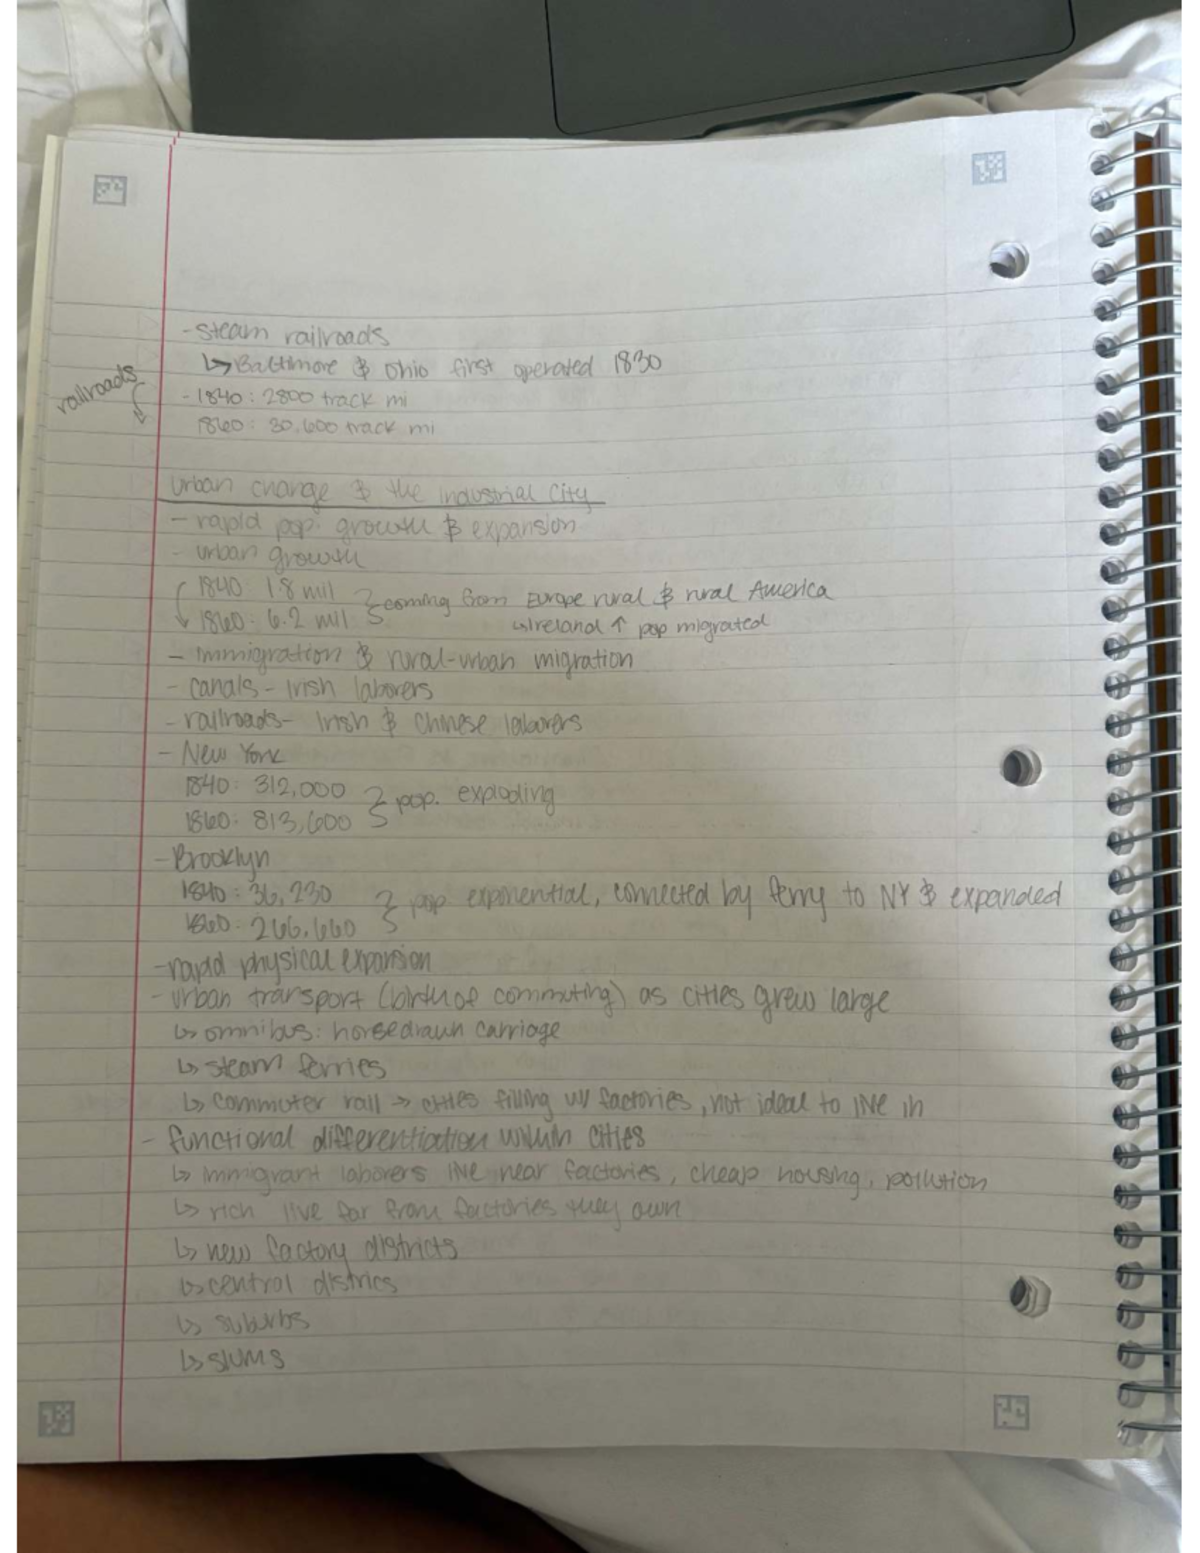 - steam railroads
↳ Baltimore & Ohio first operated 1830
railroads
- 1840: 2800 track mi
1860: 30,600 track mi
urban change & the industrial city
- rapid pop. growth & expansion
- urban growth
1840: 1.8 mil } coming from Europe rural & rural America
1860: 6.2 mil ↳ Ireland ↑ pop migrated
- immigration & rural-urban migration
- canals - Irish laborers
- railroads - Irish & Chinese laborers
- New York
1840: 312,000 } pop. exploding
1860: 813,600
- Brooklyn
1840: 36,230 } pop exponential, connected by ferry to NY & expanded
1860: 266,660
- rapid physical expansion
- urban transport (birth of commuting) as cities grew large
↳ omnibus: horsedrawn carriage
↳ steam ferries
↳ commuter rail → cities filling w/ factories, not ideal to live in
- functional differentiation within cities
↳ immigrant laborers live near factories, cheap housing, pollution
↳ rich live far from factories they own
↳ new factory districts
↳ central districs
↳ suburbs
↳ slums